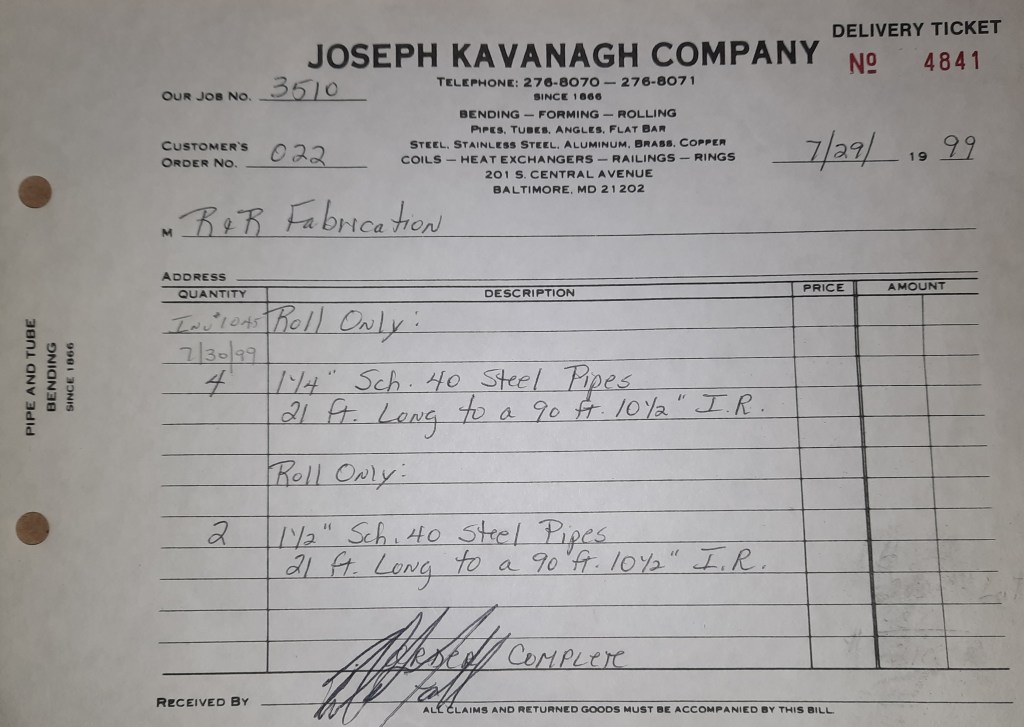 DELIVERY TICKET
JOSEPH KAVANAGH COMPANY
No 4841
TELEPHONE: 276-8070 — 276-8071
SINCE 1866
OUR JOB NO. 3510
BENDING — FORMING — ROLLING
PIPES, TUBES, ANGLES, FLAT BAR
STEEL, STAINLESS STEEL, ALUMINUM, BRASS, COPPER
COILS — HEAT EXCHANGERS — RAILINGS — RINGS
201 S. CENTRAL AVENUE
BALTIMORE, MD 21202
CUSTOMER'S
ORDER NO. 022
7/29/ 19 99
M R & R Fabrication
ADDRESS
QUANTITY DESCRIPTION PRICE AMOUNT
Inv # 1045 Roll Only:
7/30/99
4 1 1/4" Sch. 40 Steel Pipes
21 ft. Long to a 90 ft. 10 1/2" I.R.
Roll Only:
2 1 1/2" Sch. 40 Steel Pipes
21 ft. Long to a 90 ft. 10 1/2" I.R.
COMPLETE
RECEIVED BY
ALL CLAIMS AND RETURNED GOODS MUST BE ACCOMPANIED BY THIS BILL
PIPE AND TUBE
BENDING
SINCE 1866